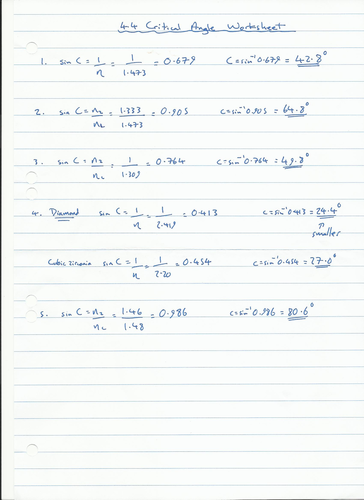 4.4 Critical Angle Worksheet
1. sin C = 1/n = 1/1.473 = 0.679 C = sin⁻¹ 0.679 = 42.8°
2. sin C = n₂/n₁ = 1.333/1.473 = 0.905 C = sin⁻¹ 0.905 = 64.8°
3. sin C = n₂/n₁ = 1/1.309 = 0.764 C = sin⁻¹ 0.764 = 49.8°
4. Diamond sin C = 1/n = 1/2.419 = 0.413 C = sin⁻¹ 0.413 = 24.4°
↑
smaller
Cubic zirconia sin C = 1/n = 1/2.20 = 0.454 C = sin⁻¹ 0.454 = 27.0°
5. sin C = n₂/n₁ = 1.46/1.48 = 0.986 C = sin⁻¹ 0.986 = 80.6°